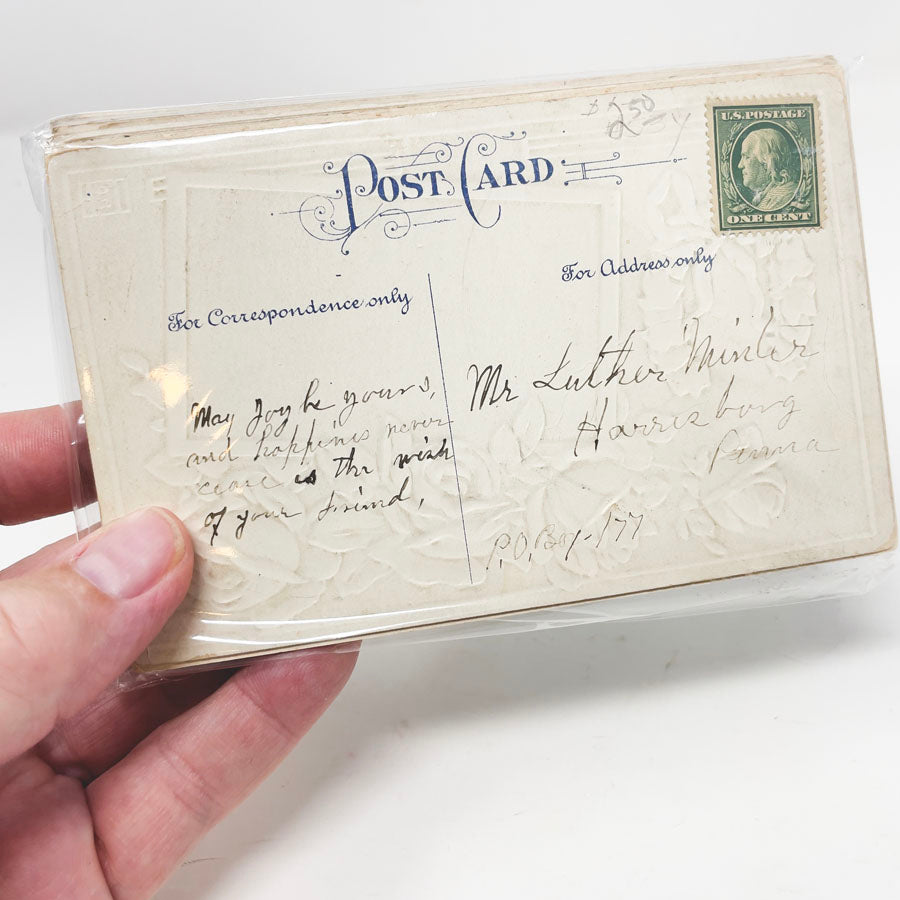 $2.50
POST CARD
U.S. POSTAGE
ONE CENT
For Correspondence only
For Address only
May Joy be yours,
and happiness never
cease is the wish
of your friend,
Mr Luther Minter
Harrisburg
Penna
P.O. Box-177